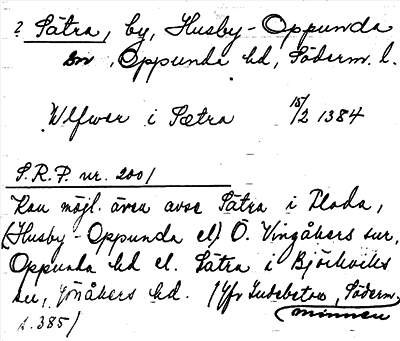 ? Sätra, by, Husby-Oppunda
sn, Oppunda hd, Söderm. l.
Ulfwer i Sætra 15/2 1384
S.R.P. nr. 2001
Kan möjl. även avse Sätra i Floda,
(Husby-Oppunda el) Ö. Vingåkers snr,
Oppunda hd el. Sätra i Björkviks
sn, Jönåkers hd. (Jfr Indebetou, Söderm.
minnen
s. 385)